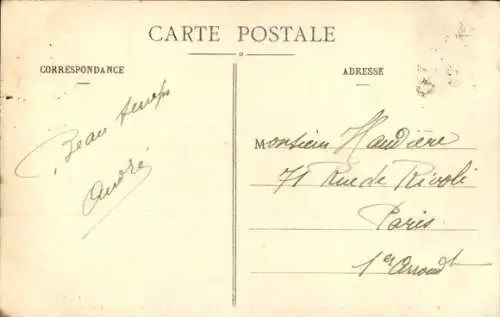 CARTE POSTALE
CORRESPONDANCE
ADRESSE
Beau temps
André
Monsieur Haudière
71 Rue de Rivoli
Paris
1er Arrondt